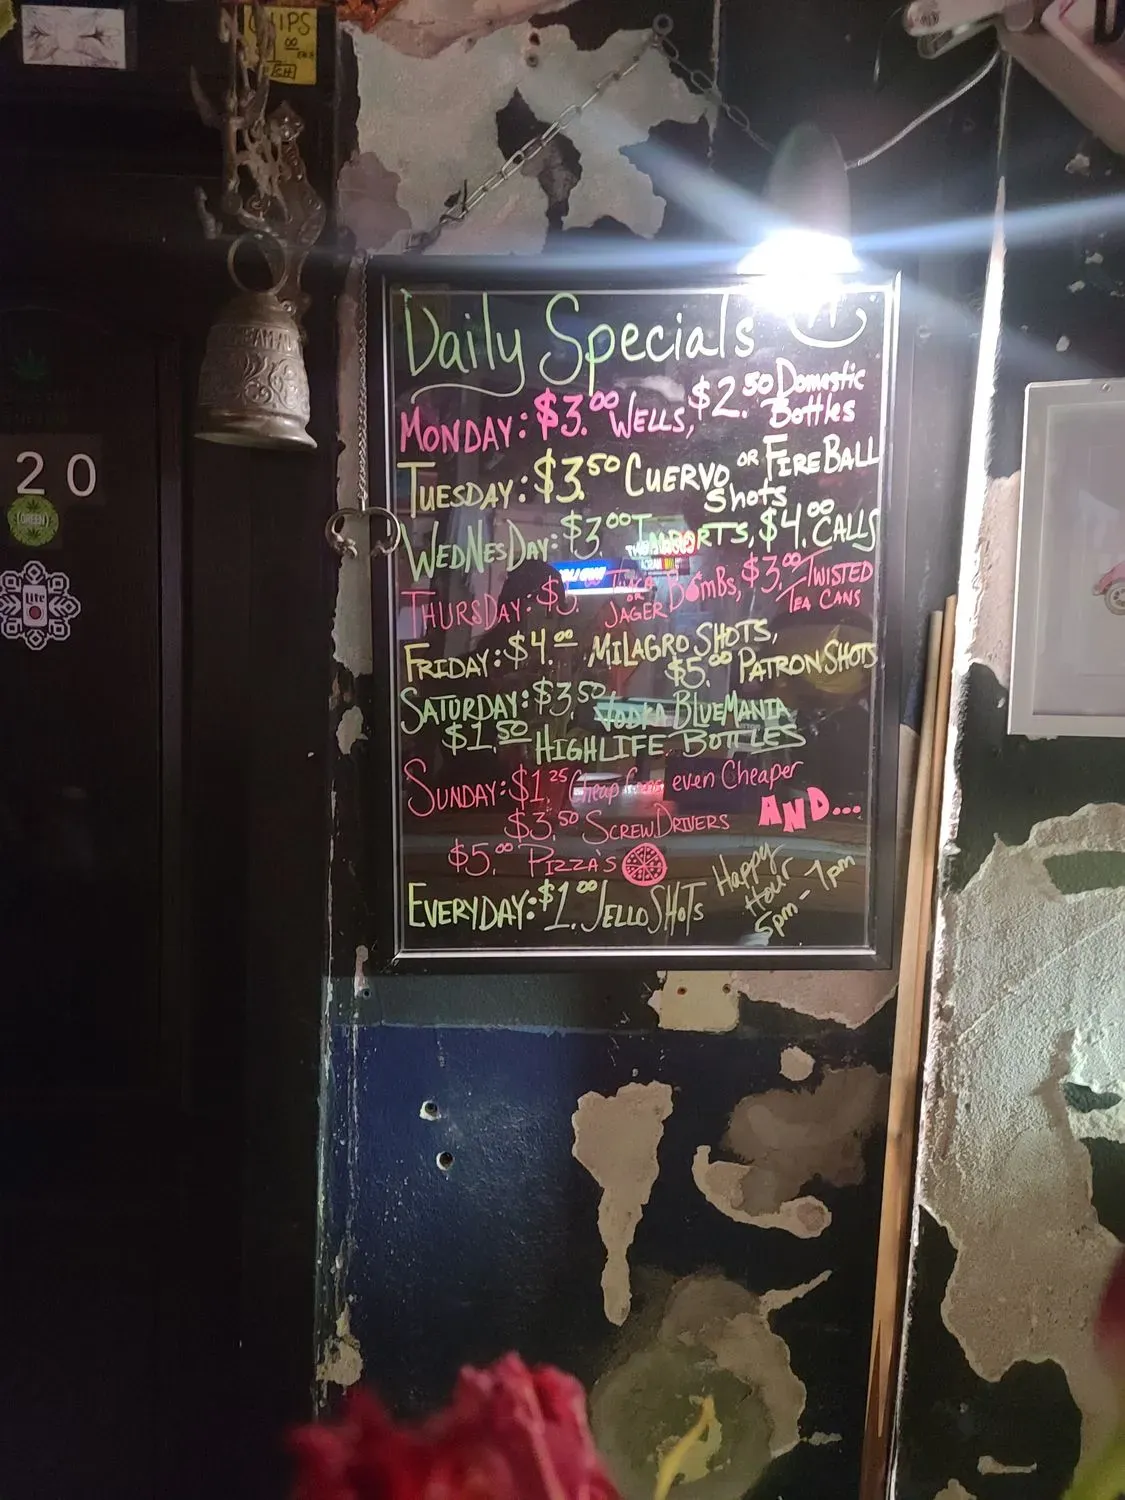 CHIPS
Daily Specials
MONDAY: $3.00 WELLS, $2.50 Domestic Bottles
TUESDAY: $3.50 CUERVO OR FIREBALL Shots
WEDNESDAY: $3.00 IMPORTS, $4.00 CALLS
THURSDAY: $3. OR JAGER BOMBS, $3.00 TWISTED TEA CANS
FRIDAY: $4.00 MILAGRO SHOTS,
$5.00 PATRON SHOTS
SATURDAY: $3.50 VODKA BLUEMANIA
$1.50 HIGHLIFE BOTTLES
SUNDAY: $1.25 Cheap even Cheaper
$3.50 SCREWDRIVERS AND...
$5.00 PIZZA'S
EVERYDAY: $1.00 JELLO SHOTS
Happy
Hour
5pm - 7pm
20
GREEN
Lite